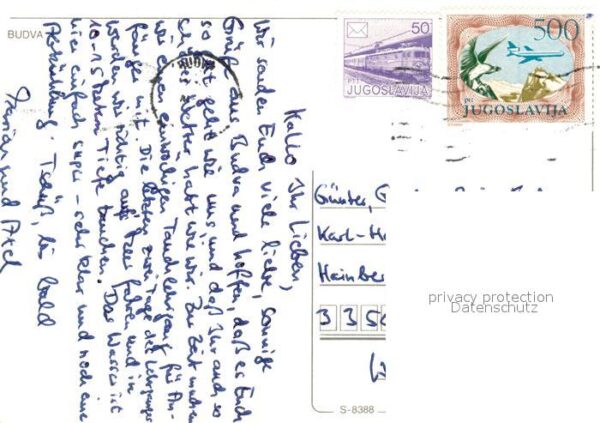 BUDVA
50
JUGOSLAVIJA
500
JUGOSLAVIJA
BUDVA
Hallo Ihr Lieben,
Wir senden Euch viele liebe, sonnige
Grüße aus Budva und hoffen, daß es Euch
so gut geht wie uns, und daß Ihr auch so
schönes Wetter habt wie wir. Zur Zeit machen
wir einen einwöchigen Tauchlehrgang für An-
fänger mit. Die letzten zwei Tage des Lehrganges
werden wir richtig auf's Meer fahren und in
10-15 Metern Tiefe tauchen. Das Wasser ist
hier einfach super - sehr klar und noch eine
Abkühlung. Tschüß, bis bald
Marian und Axel
Günter,
Karl-M
Hainber
335
S-8388
privacy protection
Datenschutz